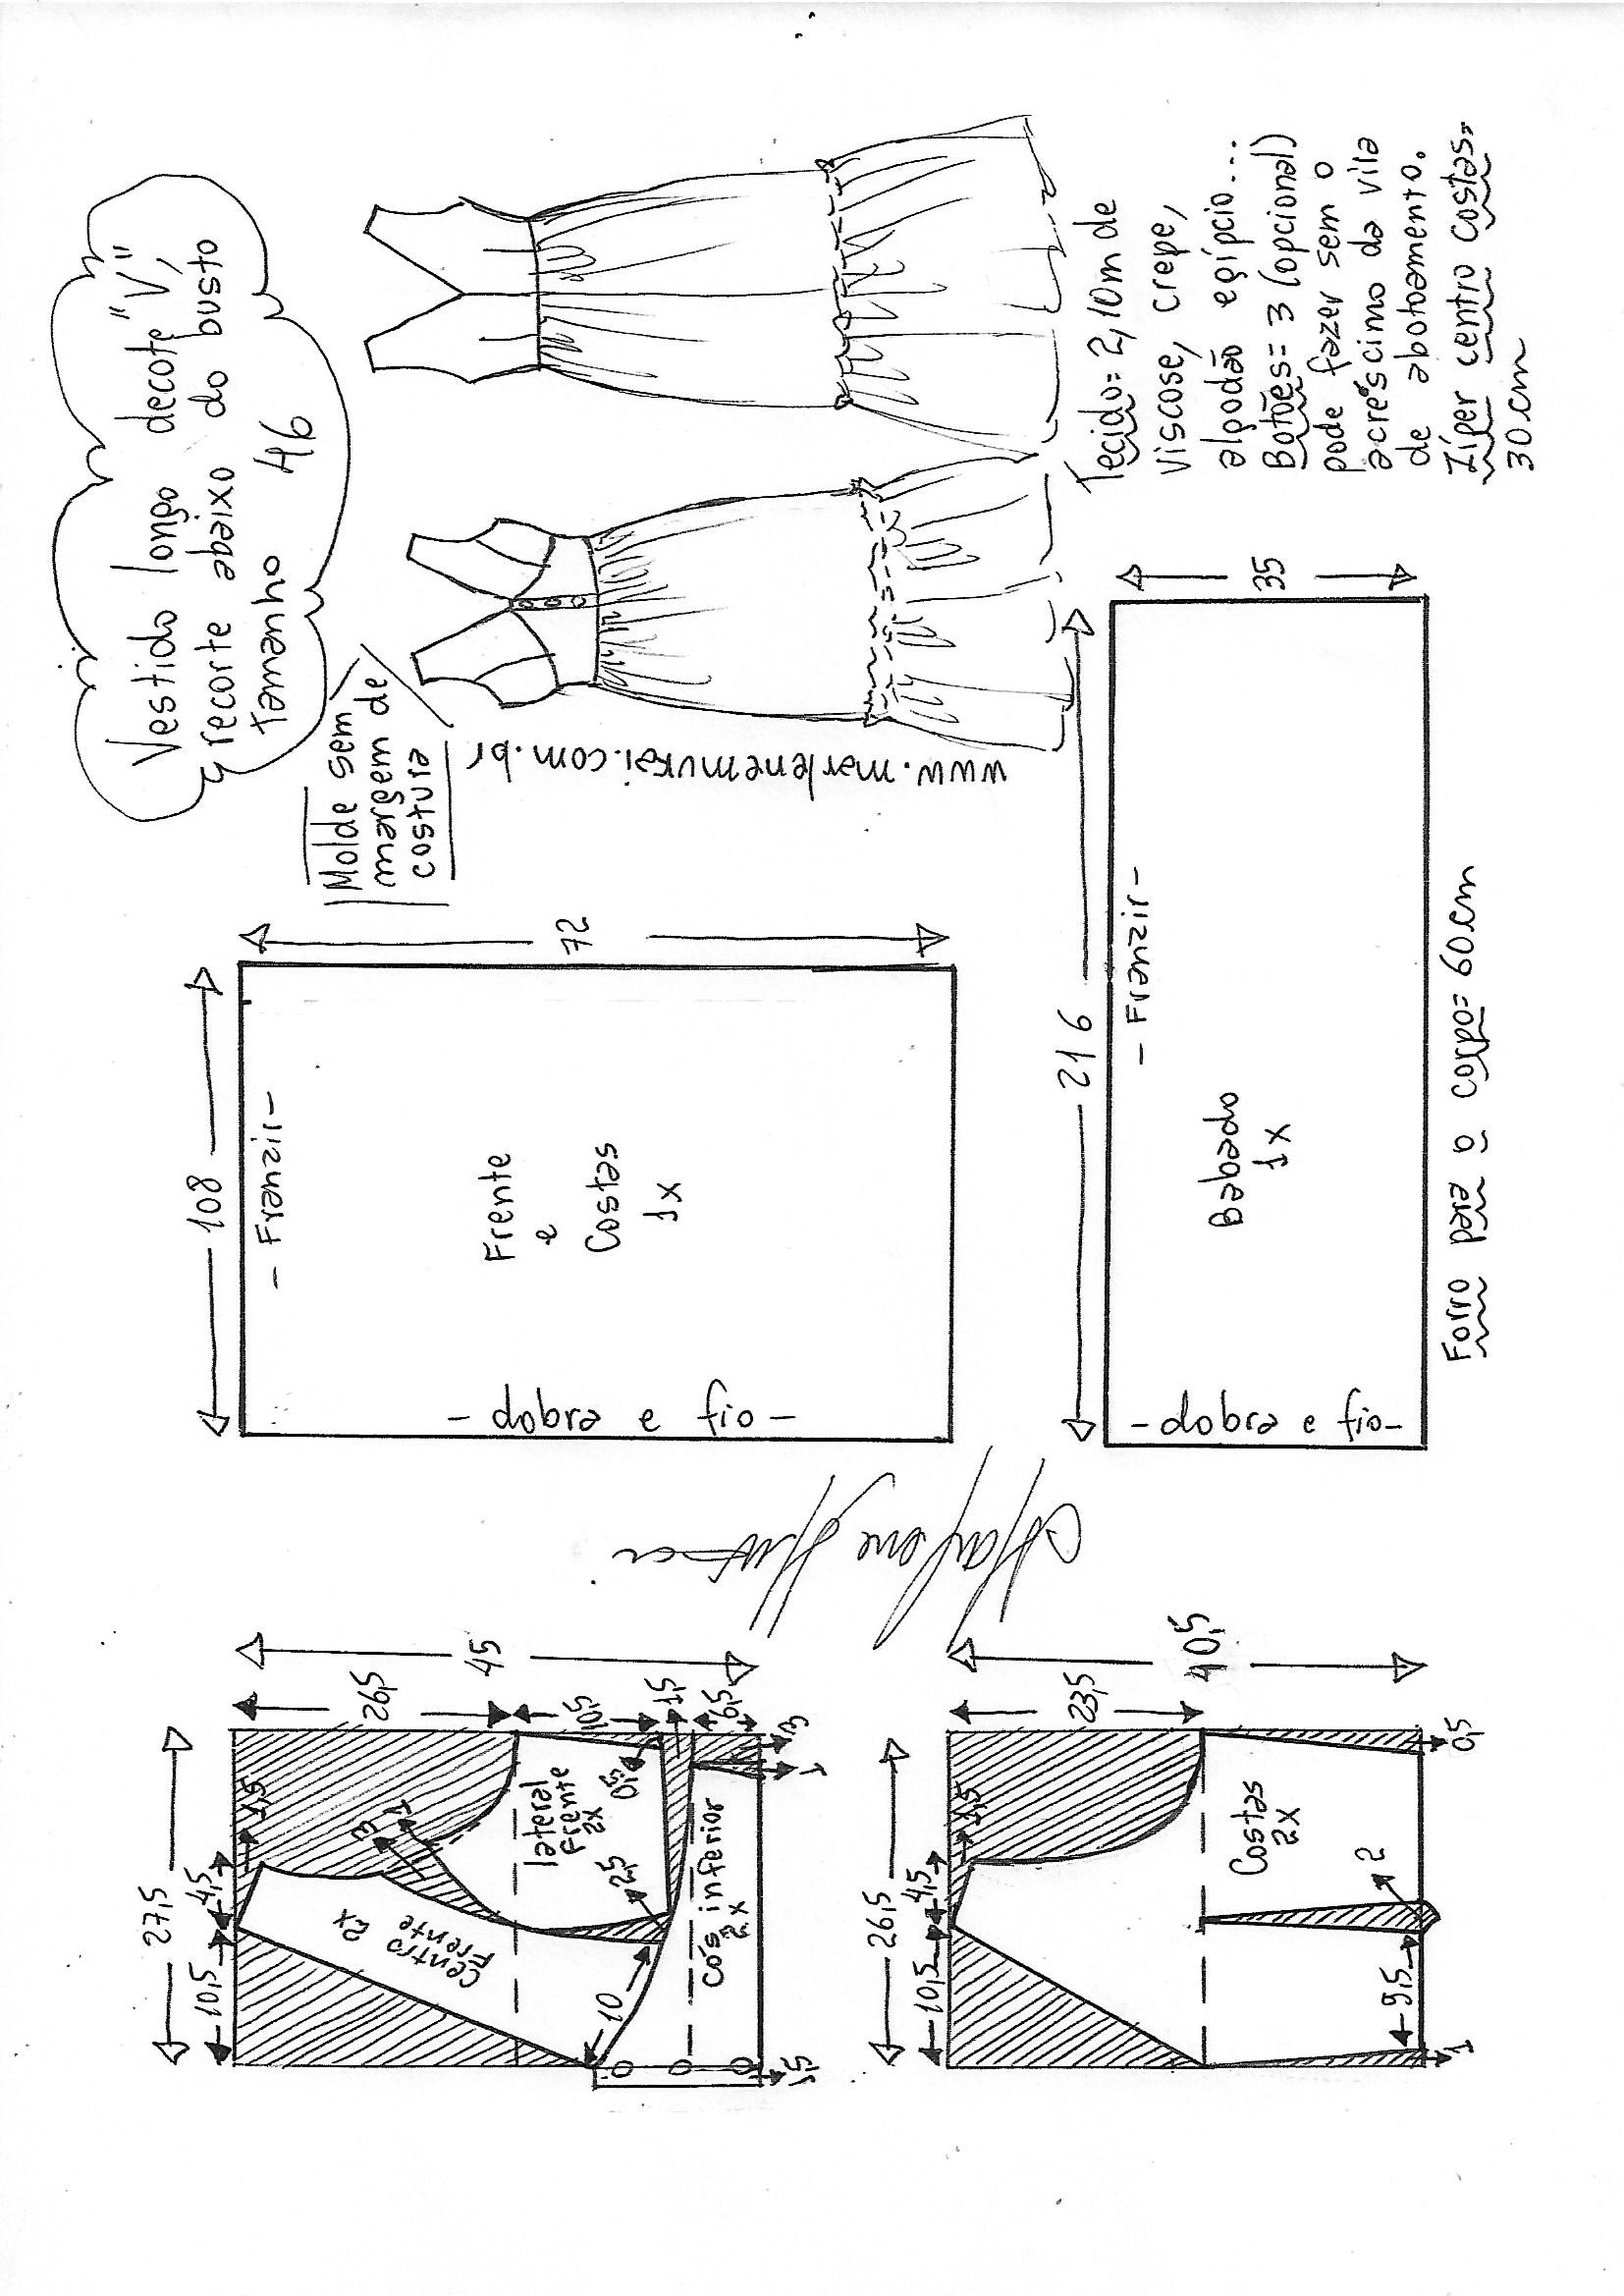 Vestido longo decote "V",
recorte abaixo do busto
tamanho 46
Molde sem
margem de
costura
www.marlenemukai.com.br
Tecido= 2,10m de
viscose, crepe,
algodão egípcio...
Botões= 3 (opcional)
pode fazer sem o
acréscimo da vila
de abotoamento.
Zíper centro costas=
30cm
108
72
- Franzir -
Frente
e
Costas
1x
- dobra e fio -
216
35
- Franzir -
Babado
1x
- dobra e fio -
Forro para o corpo= 60cm
Marlene Mukai
27,5
10,5
4,5
1,5
45
26,5
10,5
1,5
6,5
3
1
centro
Frente
2x
lateral
frente
2x
0,5
2,5
3
1
10
cós inferior
2x
1,5
26,5
10,5
4,5
1,5
40,5
23,5
Costas
2x
2
9,5
1
0,5